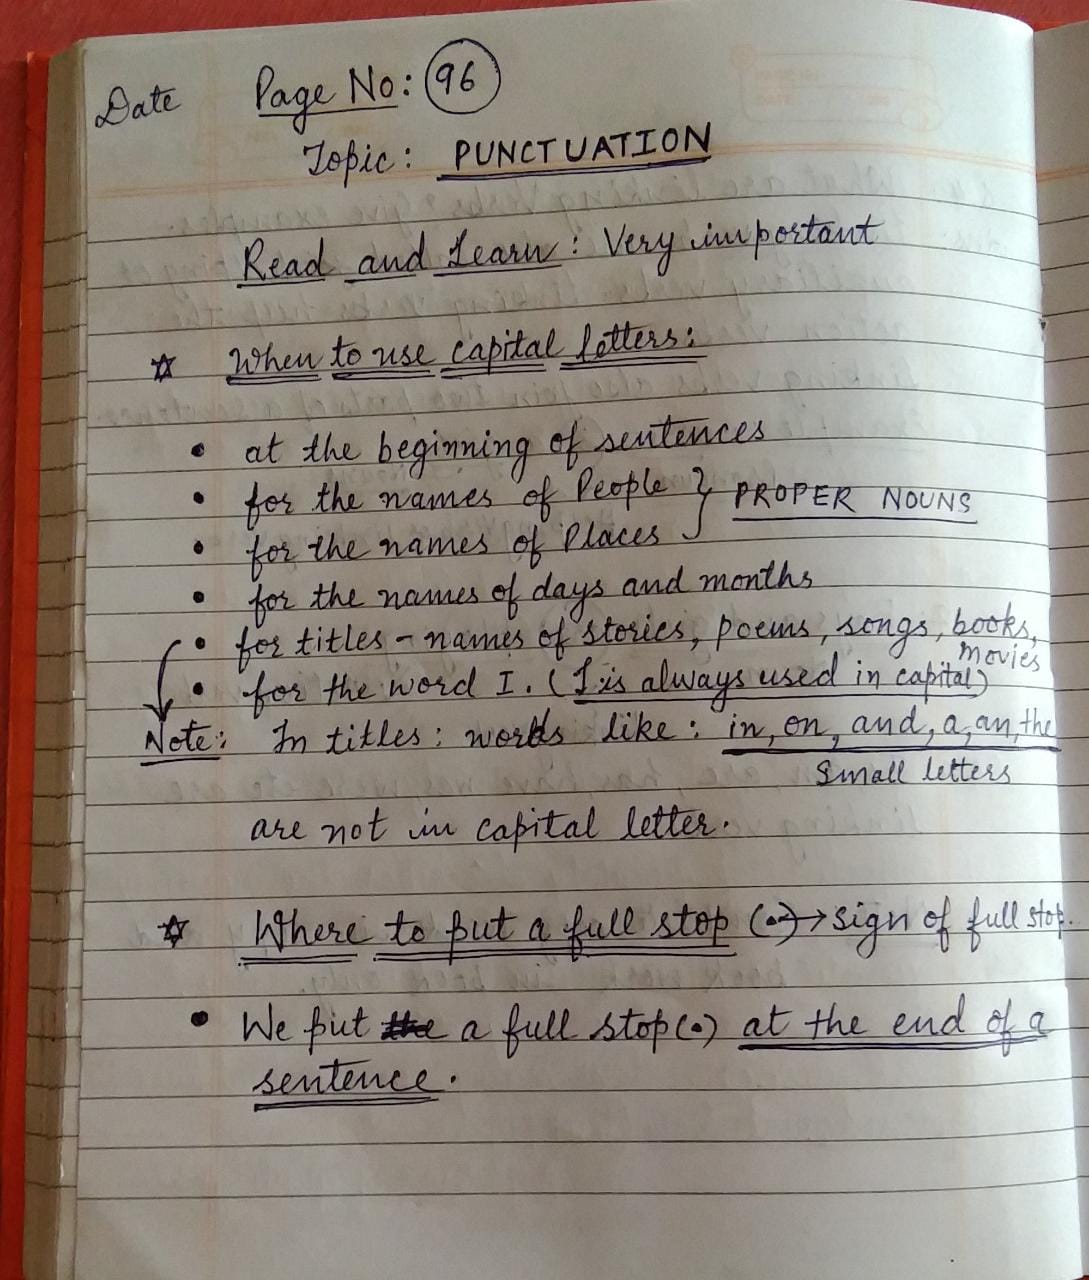 Date Page No: 96
Topic: PUNCTUATION
Read and Learn: Very important
☆ When to use capital letters:
• at the beginning of sentences
• for the names of People } PROPER NOUNS
• for the names of Places
• for the names of days and months
• for titles - names of stories, poems, songs, books,
movies
• for the word I. (I is always used in capital)
Note: In titles: words like: in, on, and, a, an, the
Small letters
are not in capital letter.
☆ Where to put a full stop (.) → sign of full stop.
• We put a full stop (.) at the end of a
sentence.